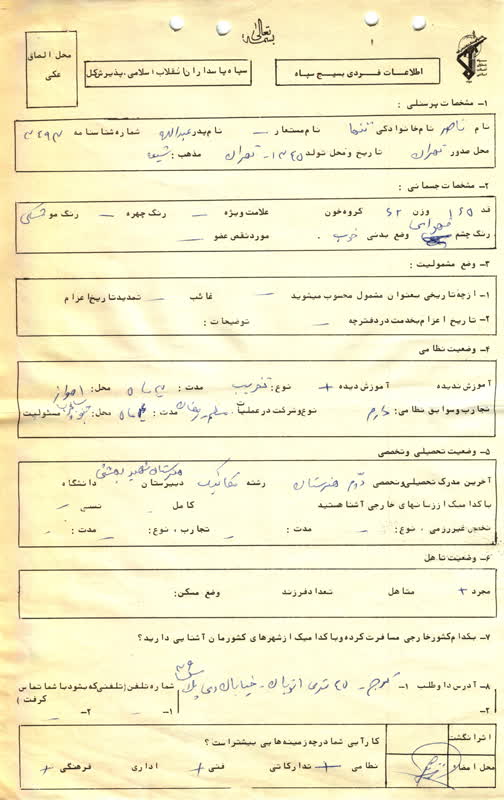 بسمه تعالی
محل الصاق عکس
سپاه پاسداران انقلاب اسلامی، پذیرش کل
اطلاعات فردی بسیج سپاه
۱- مشخصات پرسنلی :
نام ناصر نام خانوادگی تنها نام مستعار — نام پدر عبدالله شماره شناسنامه ۳۴۹۳
محل صدور تهران تاریخ و محل تولد ۱۳۴۵- تهران مذهب: شیعه
۲- مشخصات جسمانی :
قد ۱۶۵ وزن ۶۲ گروه خون علامت ویژه — رنگ چهره — رنگ مو مشکی
رنگ چشم قهوه‌ای وضع بدنی خوب . مورد نقص عضو —
۳- وضع مشمولیت :
۱- از چه تاریخی بعنوان مشمول محسوب میشوید — غائب — تمدید تاریخ اعزام
۲- تاریخ اعزام بخدمت در دفترچه — توضیحات :
۴- وضعیت نظامی
آموزش ندیده آموزش دیده + نوع: تخریب مدت : ماه محل: اهواز
تجارب و سوابق نظامی: دارم نوع و شرکت در عملیات مدت: ماه محل: مسئولیت
۵- وضعیت تحصیلی و تخصصی
آخرین مدرک تحصیلی و تخصصی دوم هنرستان رشته مکانیک دبیرستان هنرستان شهید بهشتی دانشگاه
با کدامیک از زبانهای خارجی آشنا هستید کامل — نسبی —
تخصص غیر رزمی ، نوع: — مدت : تجارب ، نوع: — مدت : —
۶- وضعیت تاهل
مجرد + متاهل تعداد فرزند وضع مسکن:
۷- بکدام کشور خارجی مسافرت کرده و با کدامیک از شهرهای کشورمان آشنایی دارید؟
۸- آدرس داوطلب ۱- کرج - ۲۵ متری - خیابان پلاک ۳۶ شماره تلفن (تلفنی که بشود با شما تماس گرفت )
۲- ۱- ۲-
اثر انگشت
کارآیی شما در چه زمینه هایی بیشتر است؟
محل امضاء نظامی + تدارکاتی فنی + اداری فرهنگی +